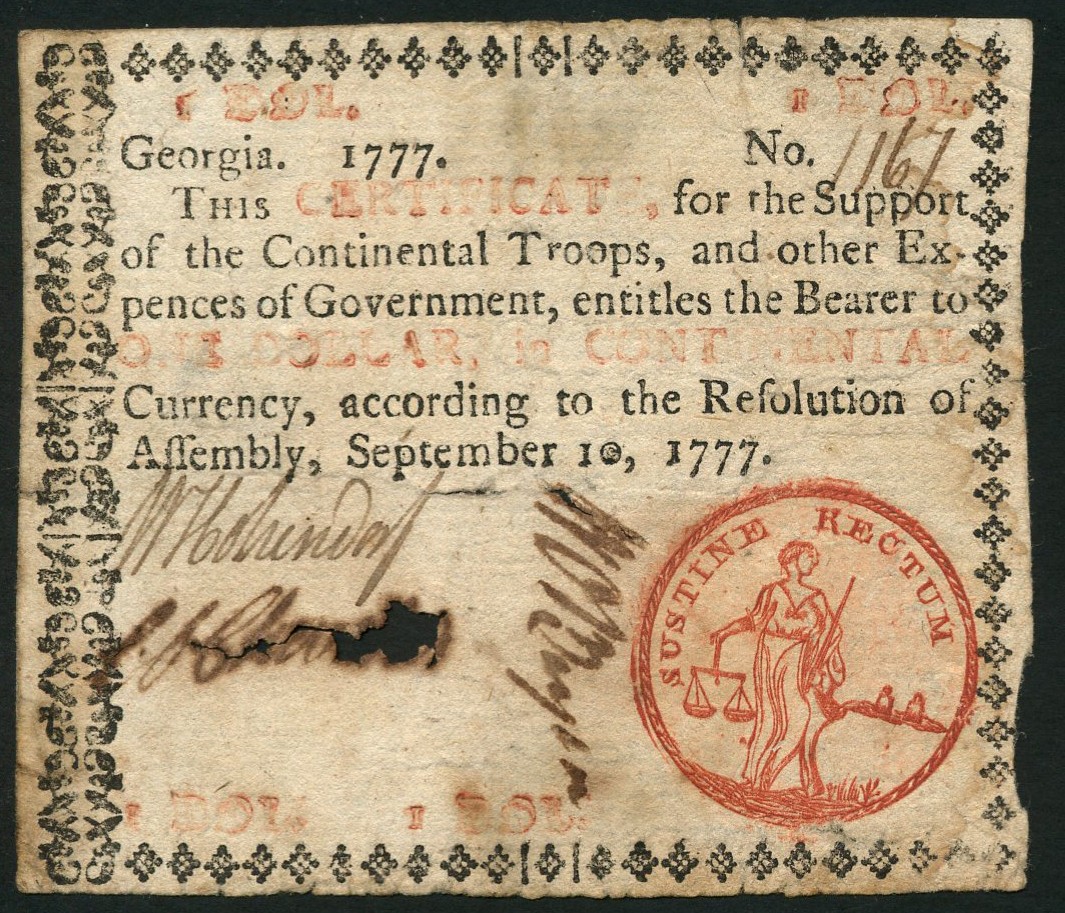 1 DOL. 1 DOL.
Georgia. 1777. No. 1167
THIS CERTIFICATE, for the Support
of the Continental Troops, and other Ex-
pences of Government, entitles the Bearer to
ONE DOLLAR, in CONTINENTAL
Currency, according to the Reſolution of
Aſſembly, September 10, 1777.
SUSTINE RECTUM
1 DOL. 1 DOL.